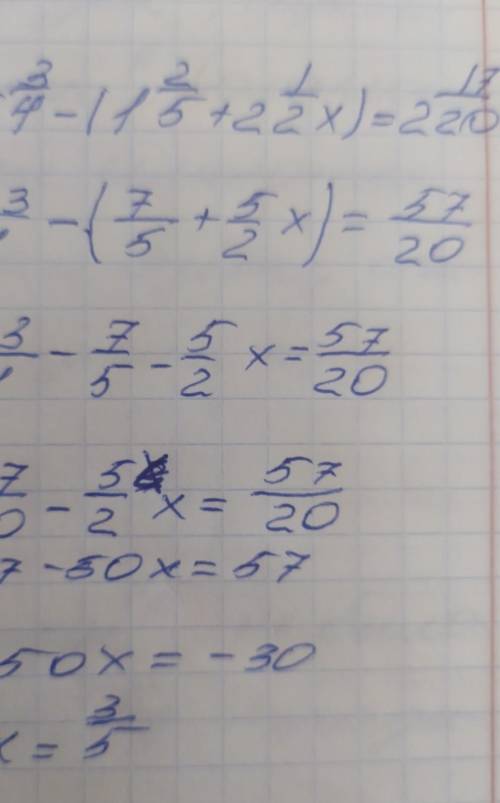 3/4 - (1 2/5 + 2 1/2 x) = 2 17/20
3/ - (7/5 + 5/2 x) = 57/20
3/ - 7/5 - 5/2 x = 57/20
7/0 - 5/2 x = 57/20
7 - 50x = 57
50x = -30
x = 3/5